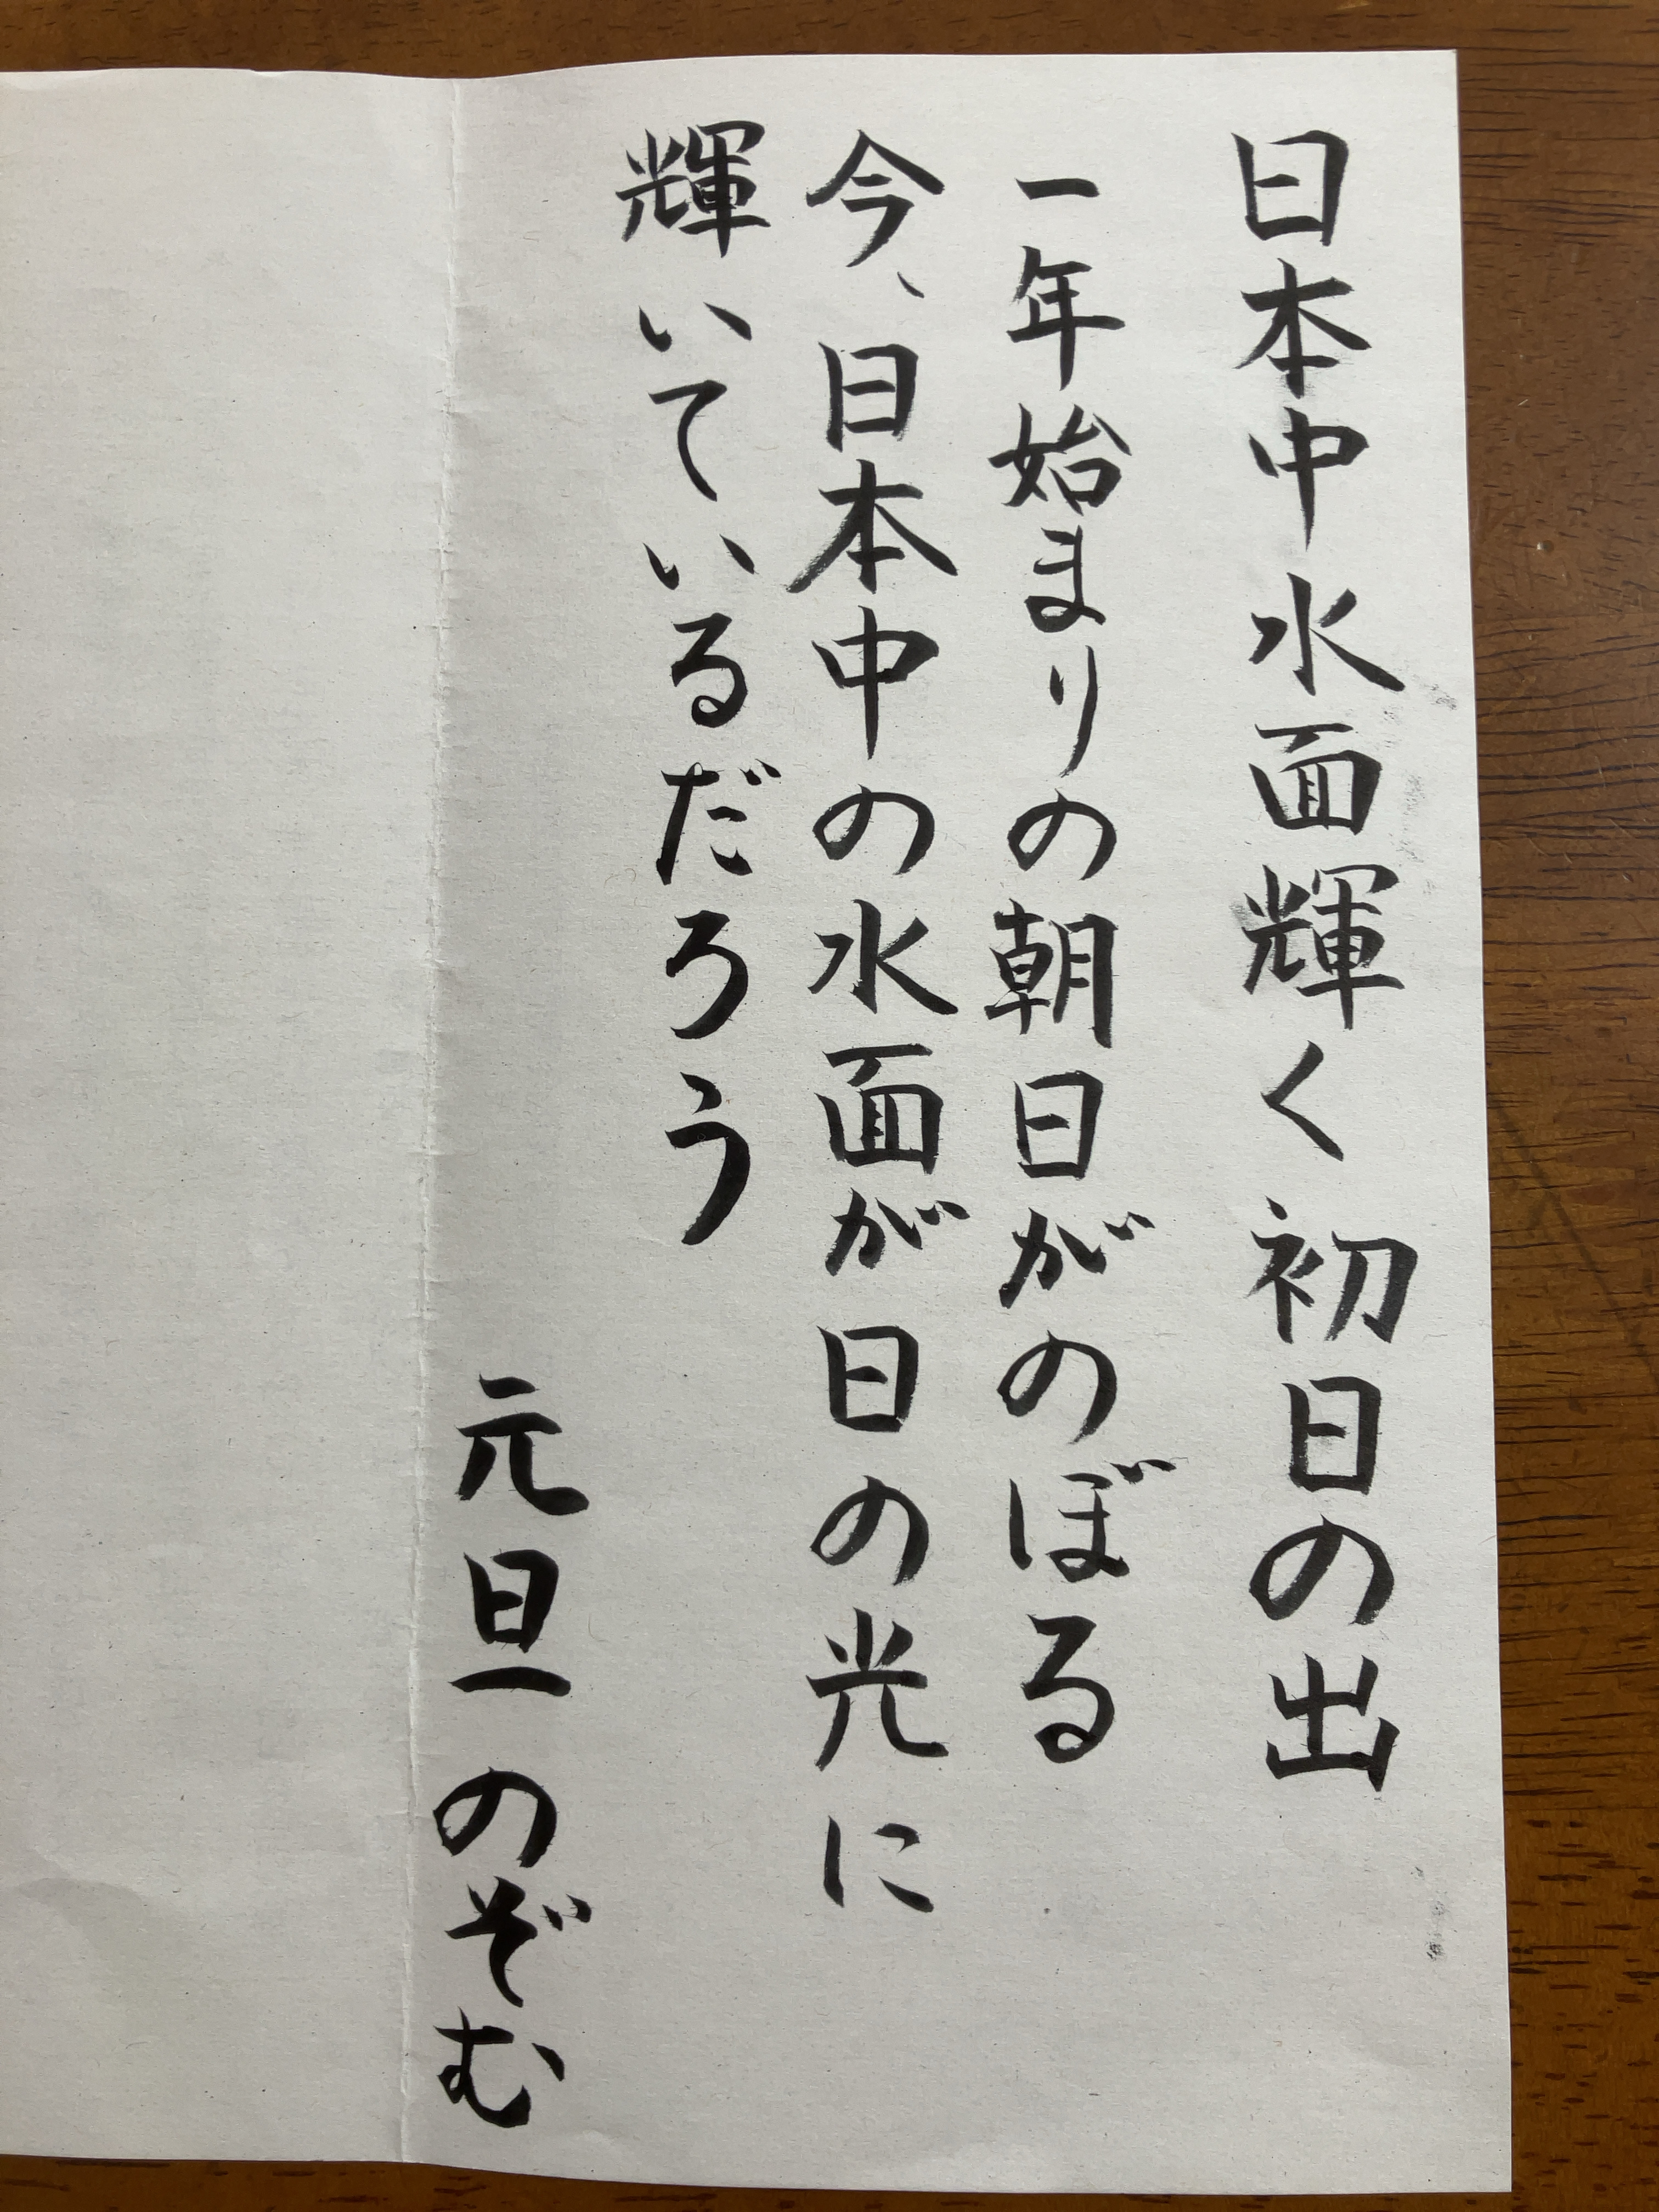 日本中水面輝く初日の出
一年始まりの朝日がのぼる
今、日本中の水面が日の光に
輝いているだろう
元旦 のぞむ